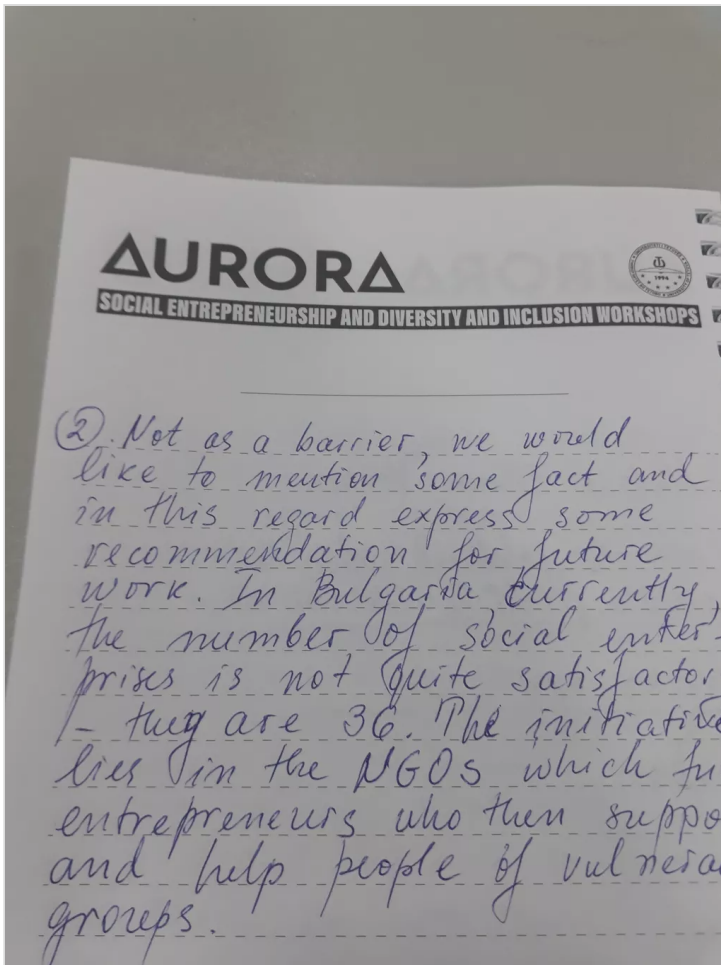 AURORA
SOCIAL ENTREPRENEURSHIP AND DIVERSITY AND INCLUSION WORKSHOPS
1994
(2). Not as a barrier, we would
like to mention some fact and
in this regard express some
recommendation for future
work. In Bulgaria currently,
the number of social enter-
prises is not quite satisfactor
– they are 36. The initiative
lies in the NGOs which fu
entrepreneurs who then suppo
and help people of vulnera
groups.